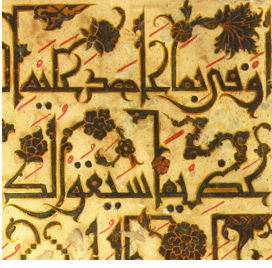 أوفى بما عاهد عليه
عظيما سيقول لك